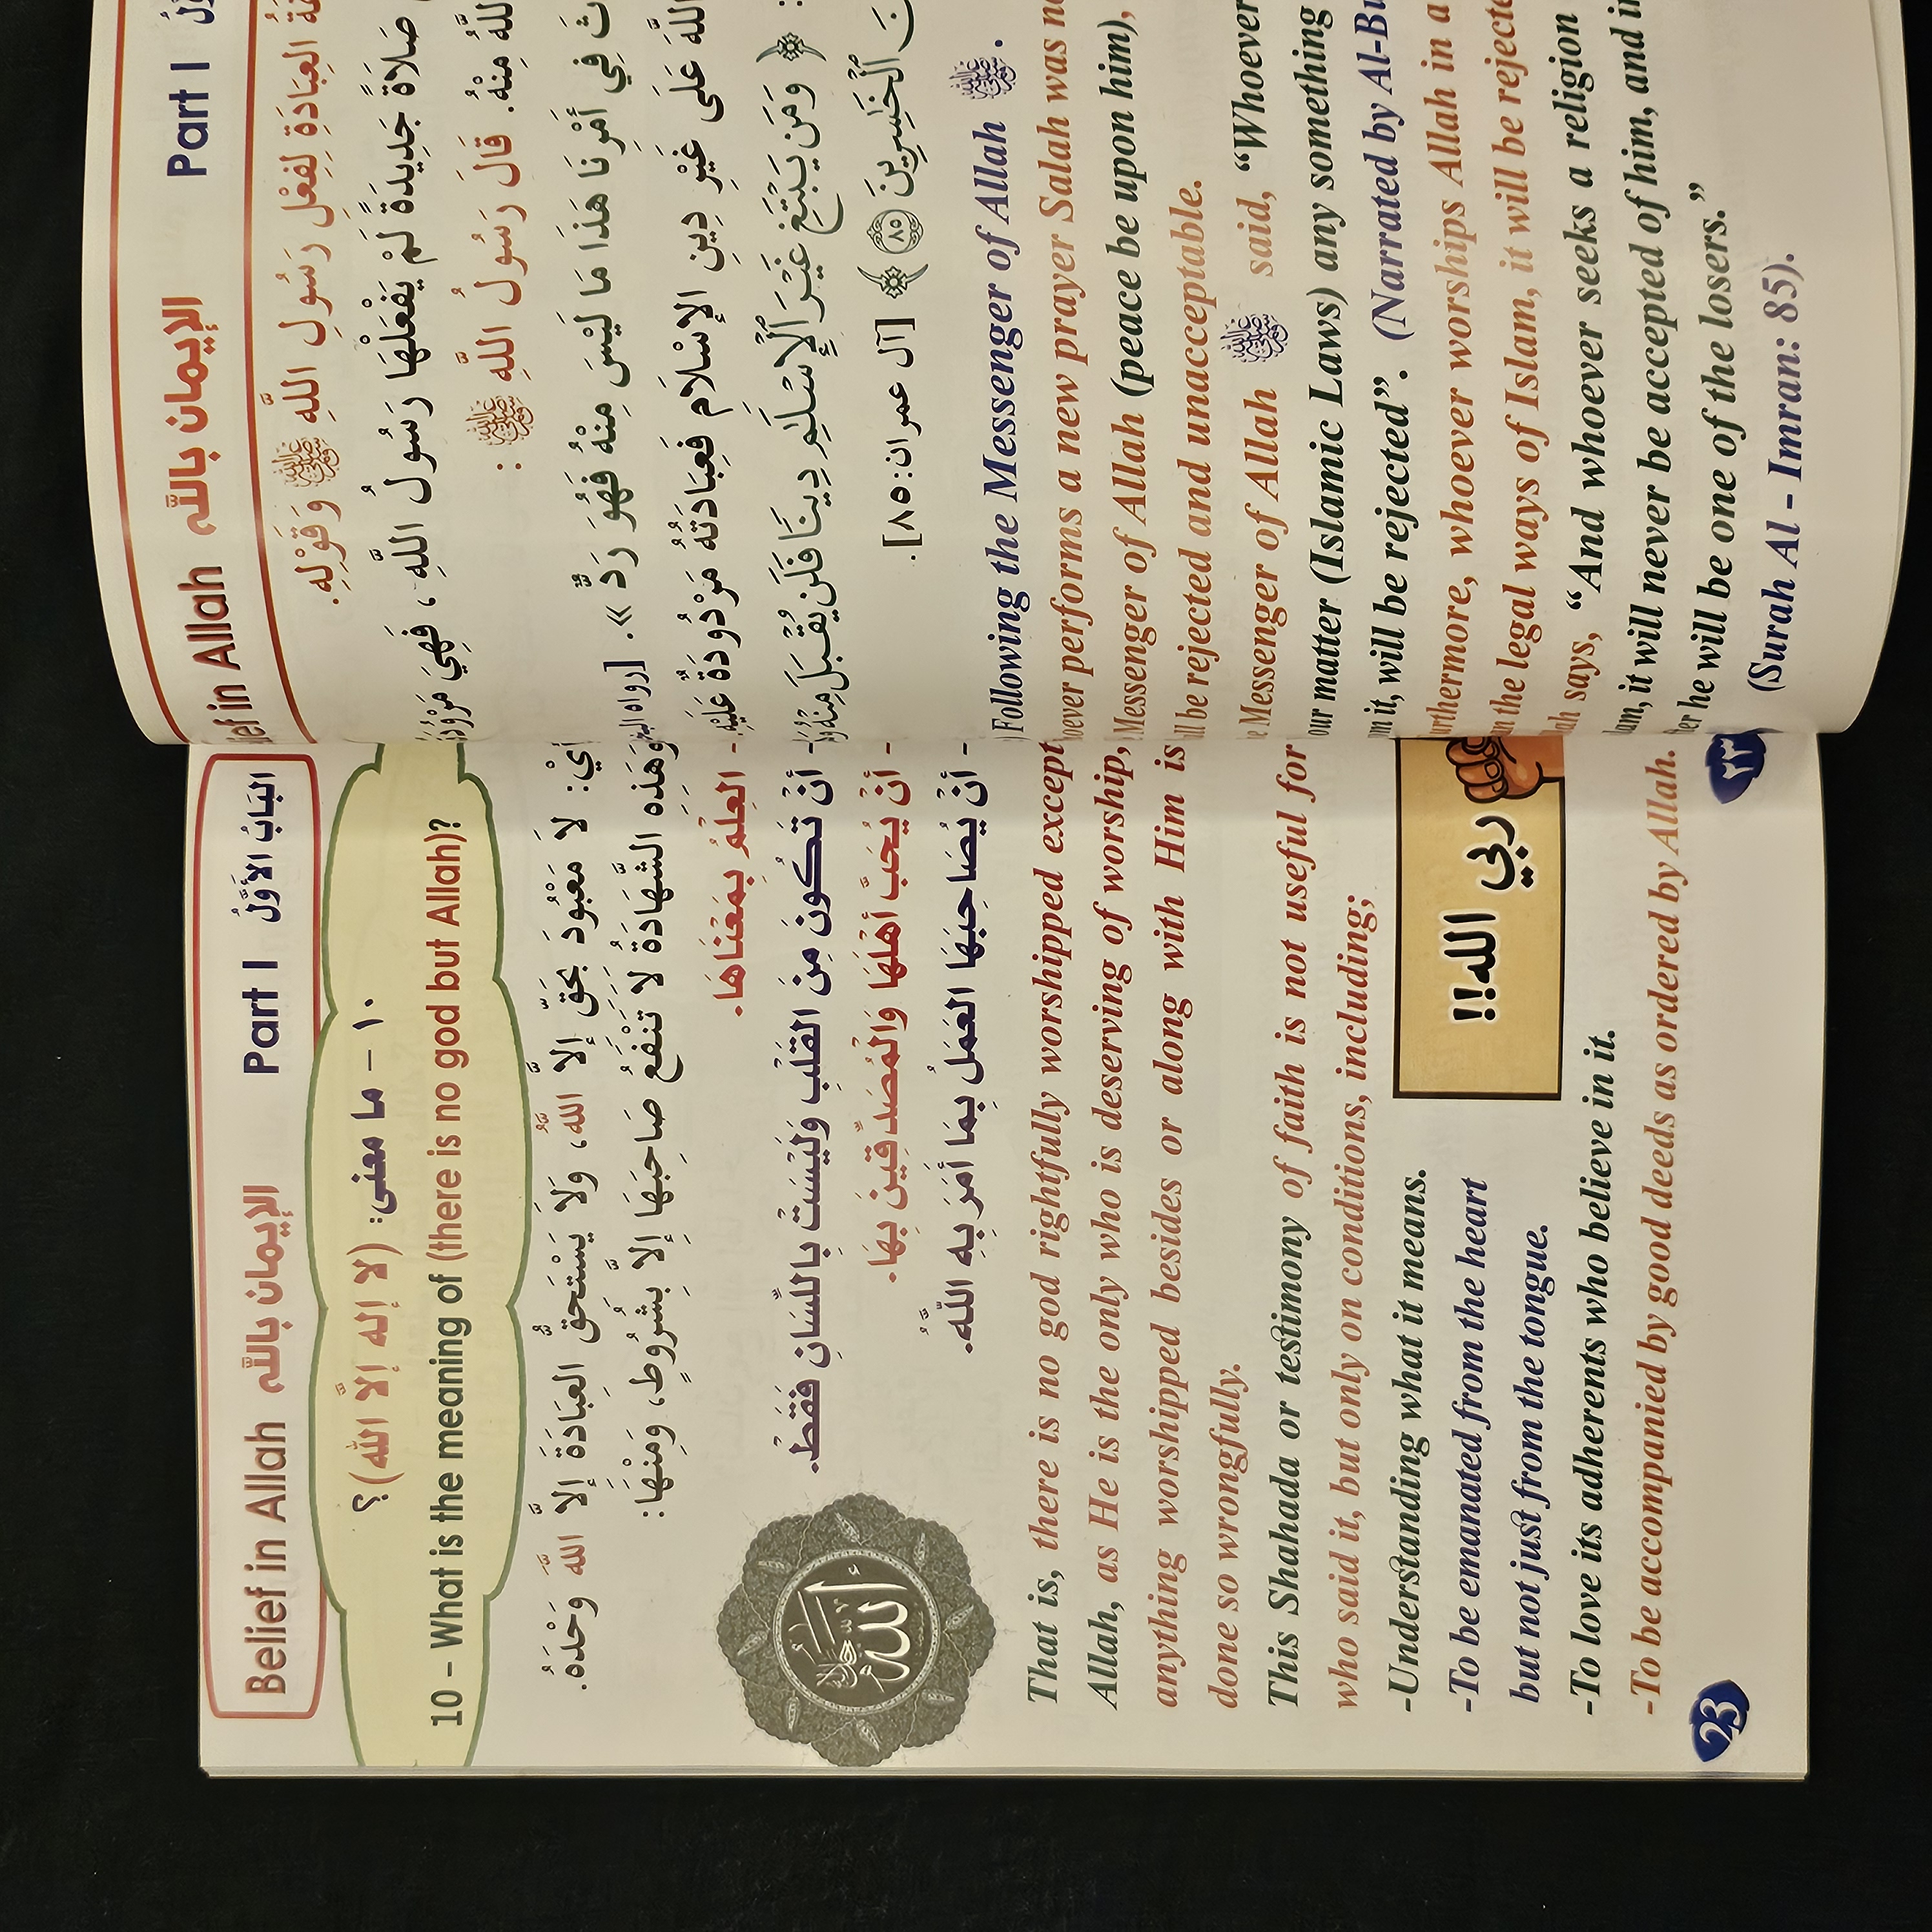 Belief in Allah الإيمان بالله Part 1 البَابُ الأَوَّلُ
١٠ – ما معنى: (لا إله إلّا الله)؟
10 – What is the meaning of (there is no god but Allah)?
أَيْ: لَا مَعْبُودَ بِحَقٍّ إِلَّا اللَّهُ، وَلَا يَسْتَحِقُّ العِبَادَةَ إِلَّا اللَّهُ وَحْدَهُ.
وَهَذِهِ الشَّهَادَةُ لَا تَنْفَعُ صَاحِبَهَا إِلَّا بِشُرُوطٍ، وَمِنْهَا:
- العِلْمُ بِمَعْنَاهَا.
- أَنْ تَكُونَ مِنَ القَلْبِ وَلَيْسَتْ بِاللِّسَانِ فَقَطْ.
- أَنْ يُحِبَّ أَهْلَهَا وَالْمُصَدِّقِينَ بِهَا.
- أَنْ يُصَاحِبَهَا العَمَلُ بِمَا أَمَرَ بِهِ اللَّهُ.
That is, there is no god rightfully worshipped except
Allah, as He is the only who is deserving of worship,
anything worshipped besides or along with Him is
done so wrongfully.
This Shahada or testimony of faith is not useful for
who said it, but only on conditions, including;
-Understanding what it means.
-To be emanated from the heart
but not just from the tongue.
ربي الله!!
-To love its adherents who believe in it.
-To be accompanied by good deeds as ordered by Allah.
23 ٢٣
in Allah الإيمان بالله Part 1
العِبَادَةِ لِفِعْلِ رَسُولِ اللَّهِ ﷺ وَقَوْلِهِ.
صَلَاةً جَدِيدَةً لَمْ يَفْعَلْهَا رَسُولُ اللَّهِ، فَهِيَ
اللَّهُ مِنْهُ. قَالَ رَسُولُ اللَّهِ ﷺ :
فِي أَمْرِنَا هَذَا مَا لَيْسَ مِنْهُ فَهُوَ رَدٌّ». [رواه
اللَّهَ عَلَى غَيْرِ دِينِ الإِسْلَامِ فَعِبَادَتُهُ مَرْدُودَةٌ عَلَيْهِ
: ﴿ وَمَن يَبْتَغِ غَيْرَ الْإِسْلَامِ دِينًا فَلَن يُقْبَلَ مِنْهُ
الْخَاسِرِينَ ٨٥ ﴾ [آل عمران: ٨٥].
Following the Messenger of Allah ﷺ.
performs a new prayer Salah was
Messenger of Allah (peace be upon him),
be rejected and unacceptable.
Messenger of Allah ﷺ said, “Whoever
our matter (Islamic Laws) any something
it, will be rejected”. (Narrated by
whoever worships Allah in a
the legal ways of Islam, it will be
says, “And whoever seeks a religion
it will never be accepted of him, and
he will be one of the losers.”
(Surah Al - Imran: 85).